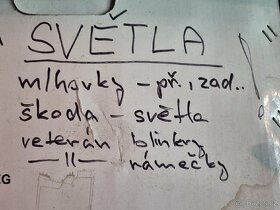 SVĚTLA
mlhovky - př., zad..
škoda - světla
veterán blinkry
—11— rámečky
KG